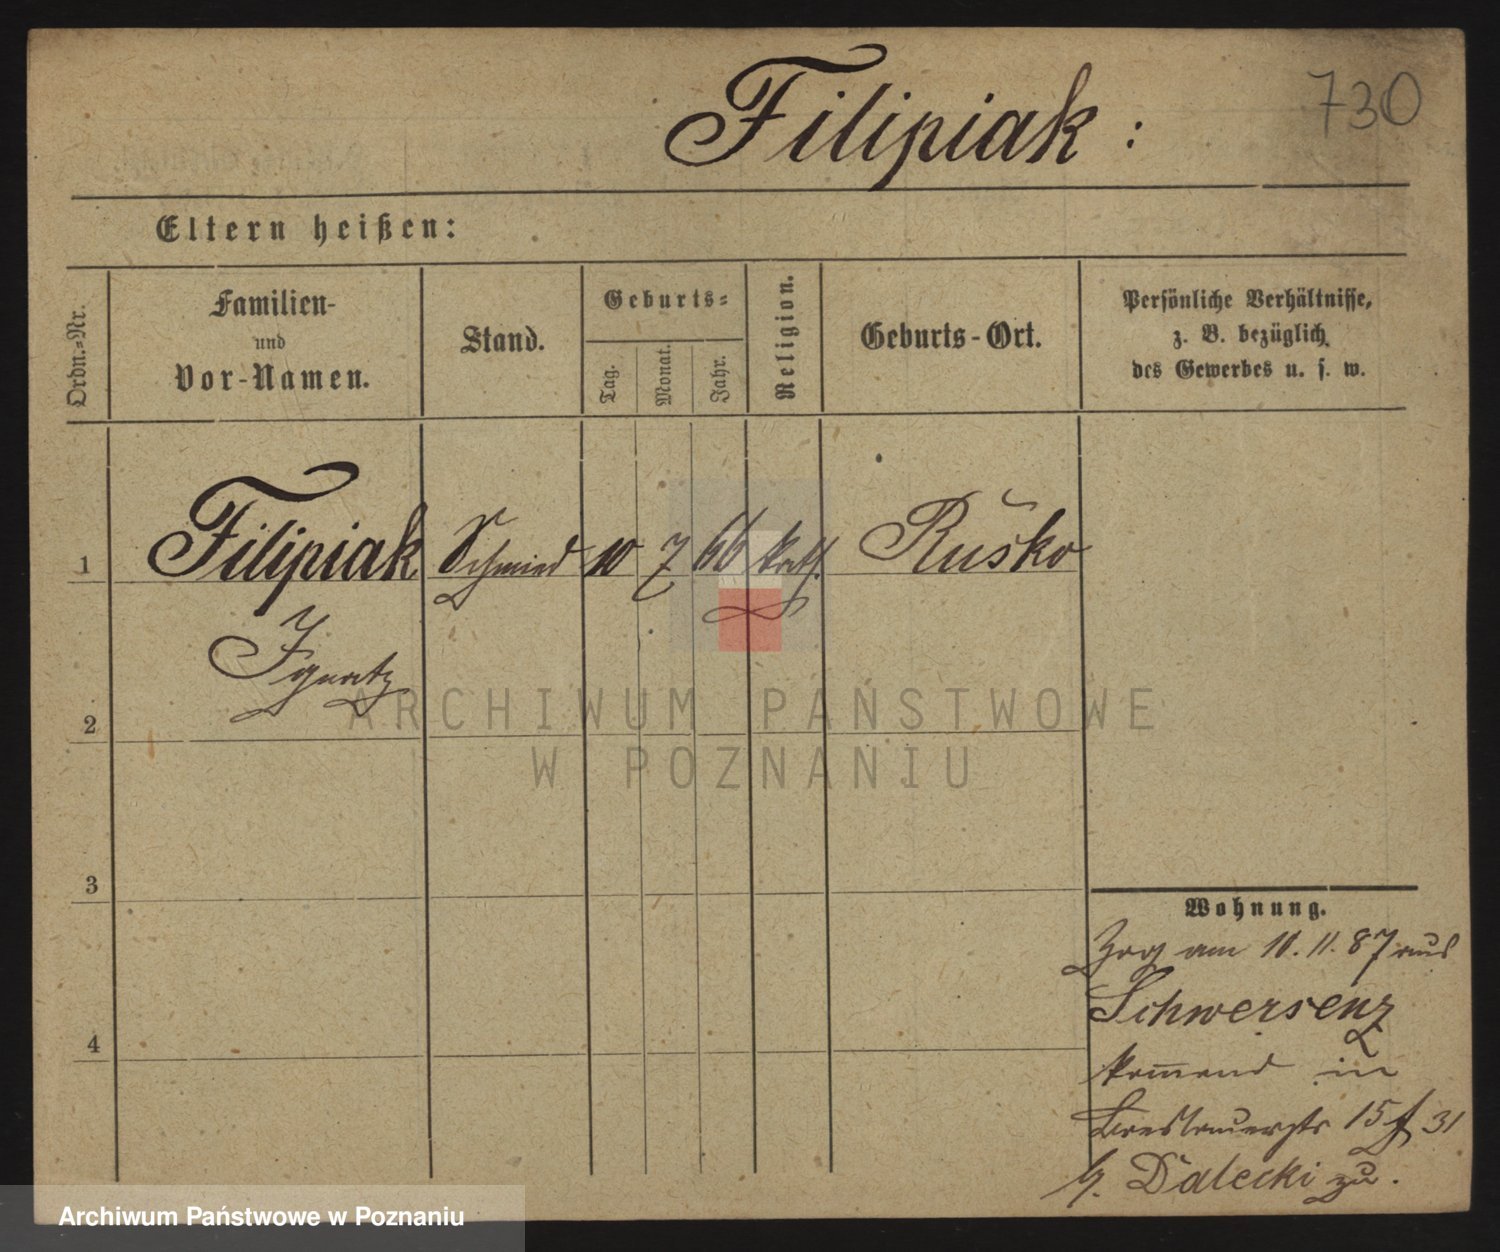 Filipiak :
730
Eltern heißen:
Ordn.-Nr.
Familien-
und
Vor-Namen.
Stand.
Geburts-
Tag.
Monat.
Jahr.
Religion.
Geburts-Ort.
Persönliche Verhältnisse,
z. B. bezüglich
des Gewerbes u. s. w.
1 Filipiak Schmied 10 7 66 kath. Rusko
Ignatz
2
3
4
Wohnung.
Zog am 10. 11. 87 aus
Schwersenz
kom̅end in
15 31
Dalecki zu.
ARCHIWUM PAŃSTWOWE
W POZNANIU
Archiwum Państwowe w Poznaniu